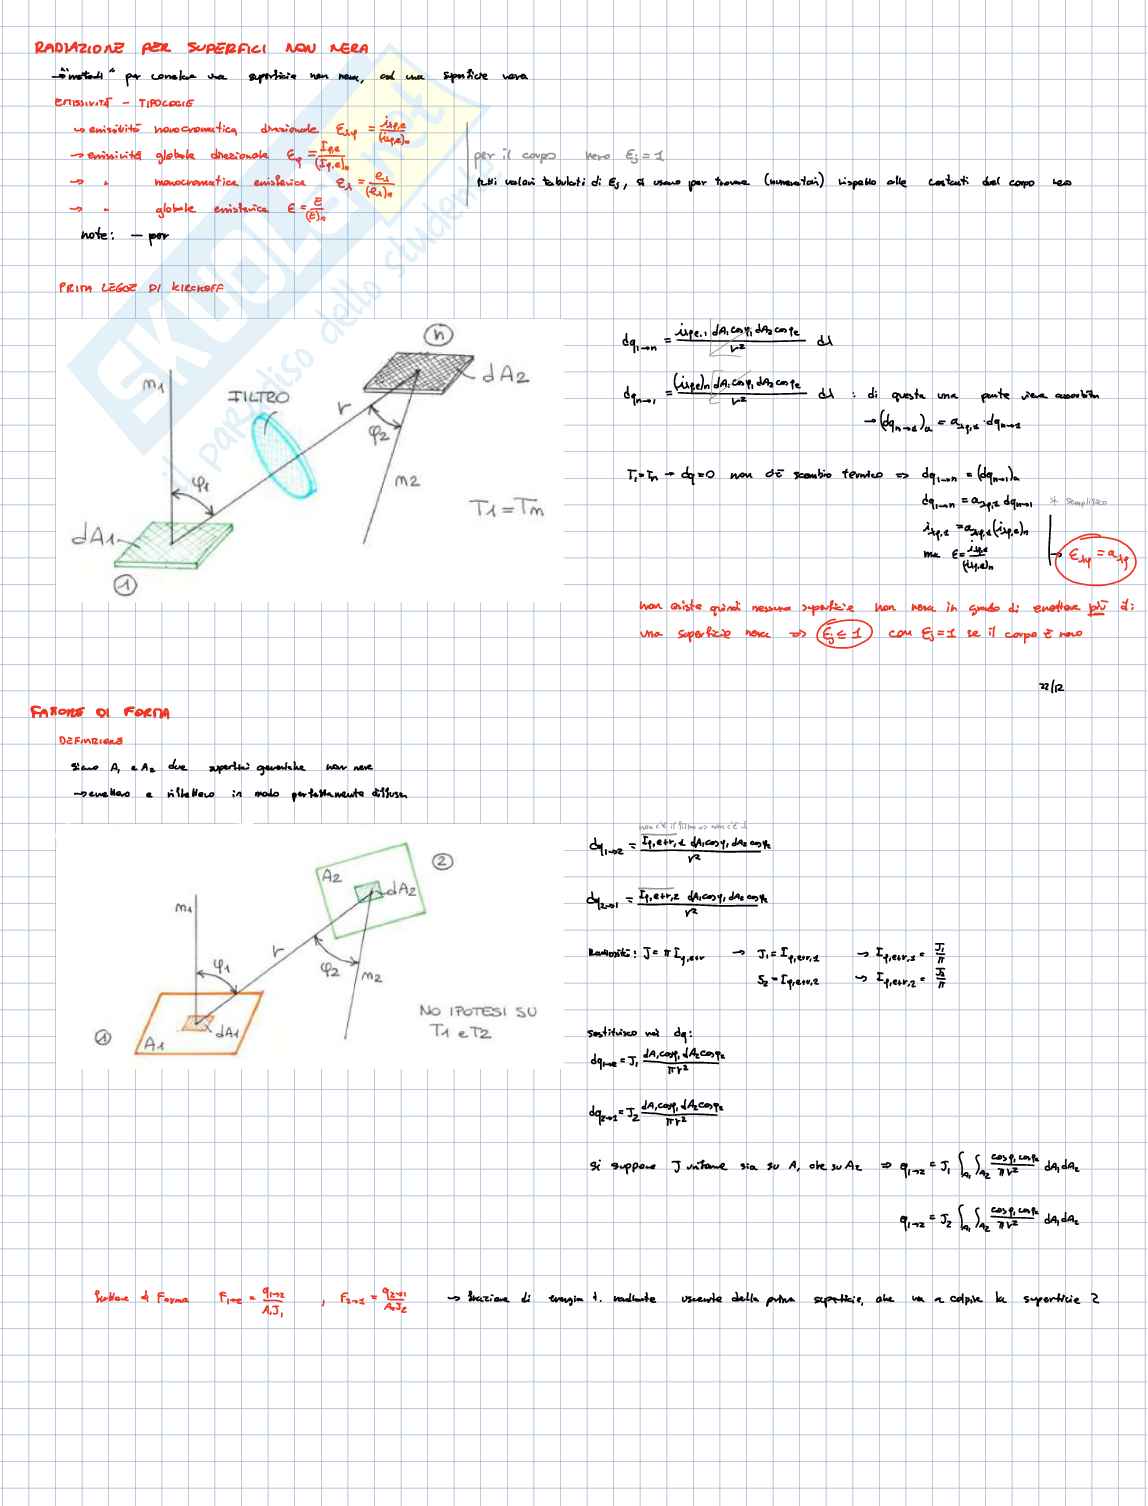 RADIAZIONE PER SUPERFICI NON NERA
→ "metodi" per correlare una superficie non nera, ad una superficie nera
EMISSIVITÀ - TIPOLOGIE
→ emissività monocromatica direzionale ε_λφ = i_λφ,e / (i_λφ,e)_n
→ emissività globale direzionale ε_φ = I_φ,e / (I_φ,e)_n
→ " monocromatica emisferica ε_λ = e_λ / (e_λ)_n
→ " globale emisferica ε = E / (E)_n
per il corpo nero ε_j = 1
tutti valori tabulati di ε_j, si usano per trovare (numeratori) rispetto alle costanti del corpo nero
note: - per
PRIMA LEGGE DI KIRCHOFF
n
dA2
n1
FILTRO
r
φ2
φ1
n2
T1 = Tn
dA1
1
dq_1→n = i_λφ,e,1 dA₁cosφ₁ dA₂cosφ₂ / r² dλ
dq_n→1 = (i_λφ,e)_n dA₁cosφ₁ dA₂cosφ₂ / r² dλ : di questa una parte viene assorbita
→ (dq_n→1)_a = a_λφ,1 · dq_n→1
T₁=Tn → dq=0 non c'è scambio termico ⇒ dq_1→n = (dq_n→1)_a
dq_1→n = a_λφ,1 dq_n→1 si semplifica
i_λφ,e = a_λφ,1 (i_λφ,e)_n
ma ε = i_λφ,e / (i_λφ,e)_n → ε_λφ = a_λφ
non esiste quindi nessuna superficie non nera in grado di emettere più di:
una superficie nera ⇒ ε_j ≤ 1 con ε_j = 1 se il corpo è nero
22/12
FATTORE DI FORMA
DEFINIZIONE
siano A₁ e A₂ due superfici generiche non nere
→ emettono e riflettono in modo perfettamente diffuso
2
A2
dA2
n1
r
φ1
φ2
n2
1
A1
dA1
NO IPOTESI SU
T1 e T2
non c'è il filtro ⇒ non c'è λ
dq_1→2 = I_φ,e+r,1 dA₁cosφ₁ dA₂cosφ₂ / r²
dq_2→1 = I_φ,e+r,2 dA₁cosφ₁ dA₂cosφ₂ / r²
Radiosità: J = π I_φ,e+r → J₁ = I_φ,e+r,1 → I_φ,e+r,1 = J₁/π
J₂ = I_φ,e+r,2 → I_φ,e+r,2 = J₂/π
sostituisco nei dq:
dq_1→2 = J₁ dA₁cosφ₁ dA₂cosφ₂ / πr²
dq_2→1 = J₂ dA₁cosφ₁ dA₂cosφ₂ / πr²
si suppone J uniforme sia su A₁ che su A₂ ⇒ q_1→2 = J₁ ∫_A₁ ∫_A₂ cosφ₁cosφ₂ / πr² dA₁dA₂
q_1→2 = J₂ ∫_A₁ ∫_A₂ cosφ₁cosφ₂ / πr² dA₁dA₂
Fattore di Forma F_1→2 = q_1→2 / A₁J₁ , F_2→1 = q_2→1 / A₂J₂ → frazione di energia t. radiante uscente della prima superficie, che va a colpire la superficie 2
SKUOLA.net
il paradiso dello studente